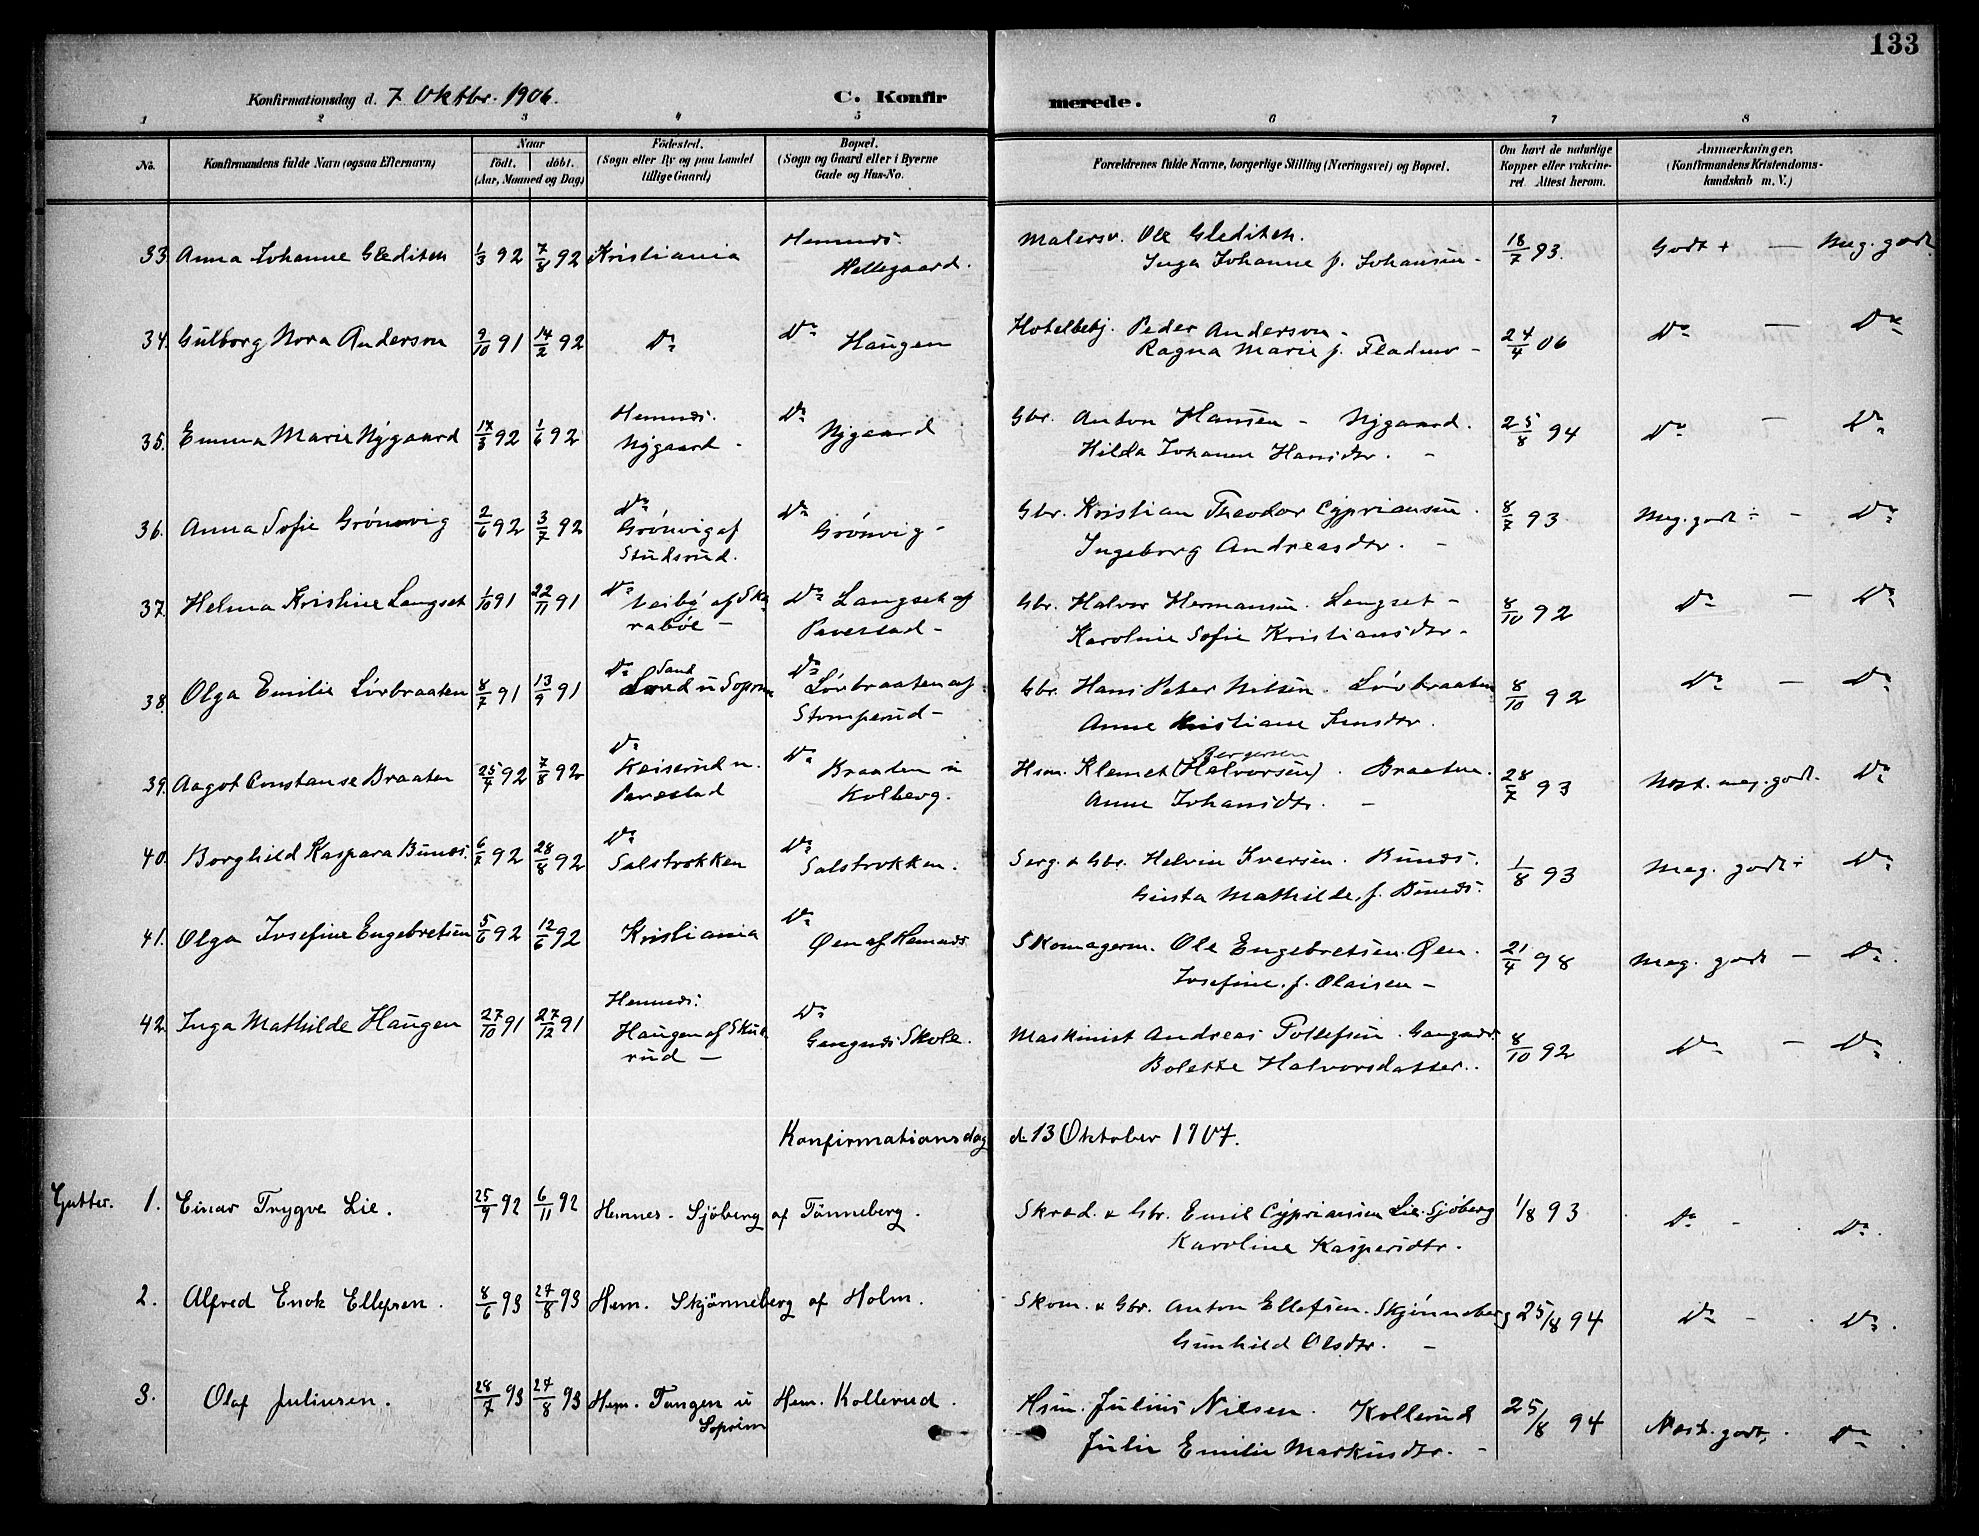 133
Konfirmationsdag d. 7 Oktbr. 1906.
C. Konfirmerede.
1 2 3 4 5 6 7 8
No. Konfirmandens fulde Navn (ogsaa Efternavn)
Naar
født. døbt.
(Aar, Maaned og Dag)
Fødested.
(Sogn eller By og paa Landet
tillige Gaard)
Bopæl.
(Sogn og Gaard eller i Byerne
Gade og Hus-No.
Forældrenes fulde Navne, borgerlige Stilling (Næringsvei) og Bopæl.
Om havt de naturlige
Kopper eller vaccine-
ret Attest herom.
Anmærkninger.
(Konfirmandens Kristendoms-
kundskab m. V.)
33 Anna Johanne Gleditch 1/3 92 7/8 92 Kristiania Hemnæs. Hellegaard. Malersv. Ole Gleditch. 18/7 93. Godt + — Meg. godt
Inga Johanne f. Johansen -
34. Gulborg Nora Anderson 9/10 91 14/2 92 Do Do Haugen Hotelbetj. Peder Anderson - 24/4 06 Do — Do
Ragna Marie f. -
35. Emma Marie Nygaard 17/3 92 1/6 92 Hemnæs. Nygaard - Do Nygaard Gbr. Anton Hansen - Nygaard. 25/8 94 Do — Do
Hilda Johanne Hansdtr. -
36. Anna Sofie Grönvig 2/6 92 3/7 92 Do Grönvig af Studsrud. Do Grönvig - Gbr. Kristian Theodor Cypriansen. 8/7 93 Meg. godt ÷ - Do
Ingeborg Andreasdtr. -
37. Helma Kristine Langset 1/10 91 22/11 91 Do Veiby af Skaraböl - Do Langset af Paverstad - Gbr. Halvor Hermansen. Langset - 8/10 92 Do — Do
Karoline Sofie Kristiansdtr -
38. Olga Emilie Lövbraaten 8/7 91 13/9 91 Do Sand u Soprim Do Lövbraaten af Stomperud - Gbr. Hans Peter Nilsen. Lövbraaten 8/10 92 Do — Do
Anne Kristiane Jensdtr.
39. Aagot Constanse Braaten 25/4 92 7/8 92 Do Keiserud u. Pavestad Do Braaten u Kolberg. Hsm. Klemet (Halvorsen) Borgersen. Braaten. 28/7 93 Nost. meg. godt. Do
Anne Johansdtr. -
40. Borghild Kaspara Bunæs. 6/7 92 28/8 92 Do Salstrokken Do Salstrokken. Serg. & Gbr. Helvin Iversen. Bunæs. 1/8 93 Meg. godt ÷ Do
Gusta Mathilde, f. Bunæs.
41. Olga Josefine Engebretsen 5/6 92 12/6 92 Kristiania Do Øen af Hemnæs Skomagerm. Ole Engebretsen. Øen. 21/4 98 Meg. godt - Do
Josefine, f. Olaisen -
42 Inga Mathilde Haugen 27/10 91 27/12 91 Hemnæs. Haugen af Skubrud - Do Gangnæs Skole. Maskinist Andreas Tollefsen. Gangnæs. 8/10 92 Do — Do
Bolette Halvorsdatter.
Konfirmationsdag d. 13 Oktober 1907.
Gutter. 1. Einar Trygve Lie. 25/9 92 6/11 92 Hemnes. Sjöberg af Tönneberg. Skræd. & Gbr. Emil Cypriansen Lie. Sjöberg 1/8 93 Do - Do
Karoline Kaspersdtr.
2. Alfred Enok Ellefsen. 8/6 93 27/8 93 Hem. Skjönneberg af Holm. Skom. & Gbr. Anton Ellefsen. Skjönneberg 25/8 94 Do - Do
Gunhild Olsdtr. -
3. Olaf Juliusen. 28/7 93 27/8 93 Hem. Tangen u Soprim Hem. Kollerud. Hsm. Julius Nilsen. Kollerud 25/8 94 Nost. godt. Do
Julie Emilie Markusdtr. -